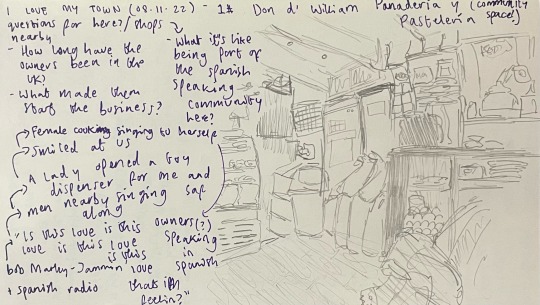 I LOVE MY TOWN (08.11.22) - 1# Don d' William Panadería y (community
Pasteleria space!)
questions for here?/shops
nearby
- How long have the
owners been in the
UK?
- What made them
start the business?
- What it's like
being part of
the spanish
speaking
community
here?
Female cooking singing to herself
Smiled at us
A lady opened a
dispenser for me and
men nearby singing
along
"Is this love is this
love is this love
is this
love
that i'm
feelin?"
owners(?)
speaking
in
spanish
bob Marley-Jammin
+ spanish radio